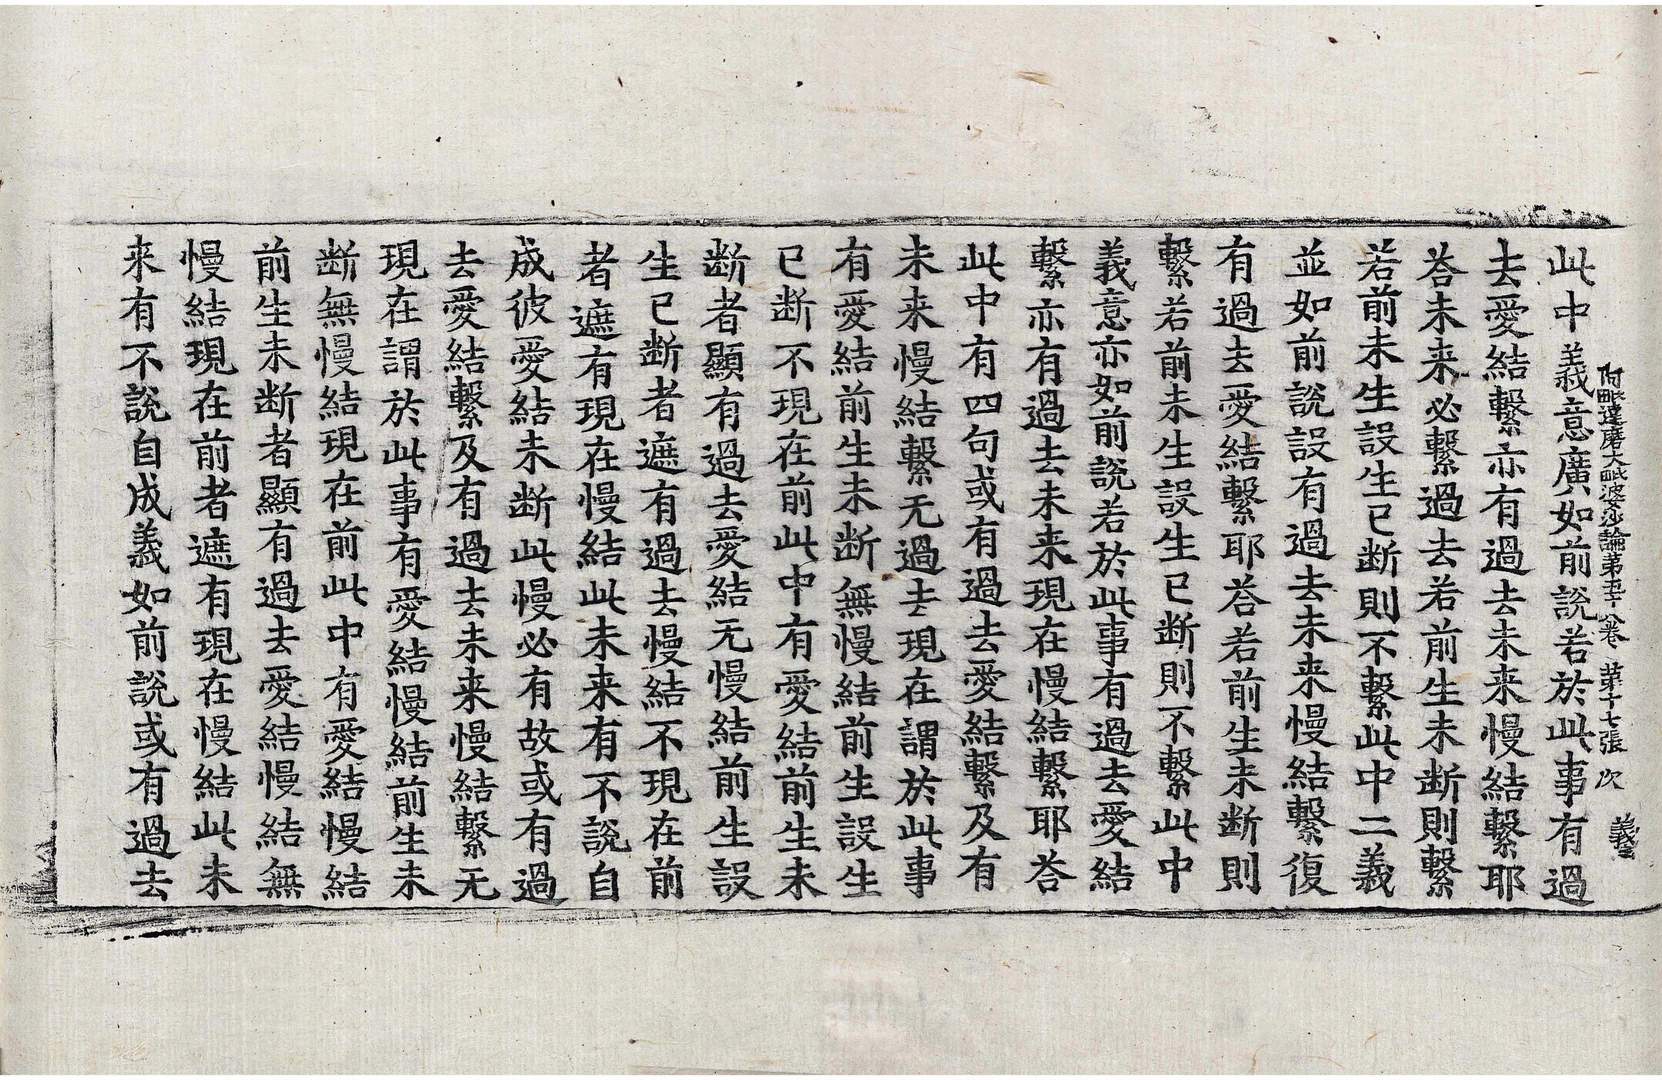 阿毗達磨大毗婆沙論第五十八卷 第十七張 次 義
此中義意廣如前說若於此事有過
去愛結繫亦有過去未来慢結繫耶
荅未来必繫過去若前生未断則繫
若前未生設生已断則不繫此中二義
並如前說設有過去未来慢結繫復
有過去愛結繫耶荅若前生未断則
繫若前未生設生已断則不繫此中
義意亦如前說若於此事有過去愛結
繫亦有過去未来現在慢結繫耶荅
此中有四句或有過去愛結繫及有
未来慢結繫无過去現在謂於此事
有愛結前生未断無慢結前生設生
已断不現在前此中有愛結前生未
断者顯有過去愛結无慢結前生設
生已断者遮有過去慢結不現在前
者遮有現在慢結此未来有不說自
成彼愛結未断此慢必有故或有過
去愛結繫及有過去未来慢結繫无
現在謂於此事有愛結慢結前生未
断無慢結現在前此中有愛結慢結
前生未断者顯有過去愛結慢結無
慢結現在前者遮有現在慢結此未
来有不說自成義如前說或有過去